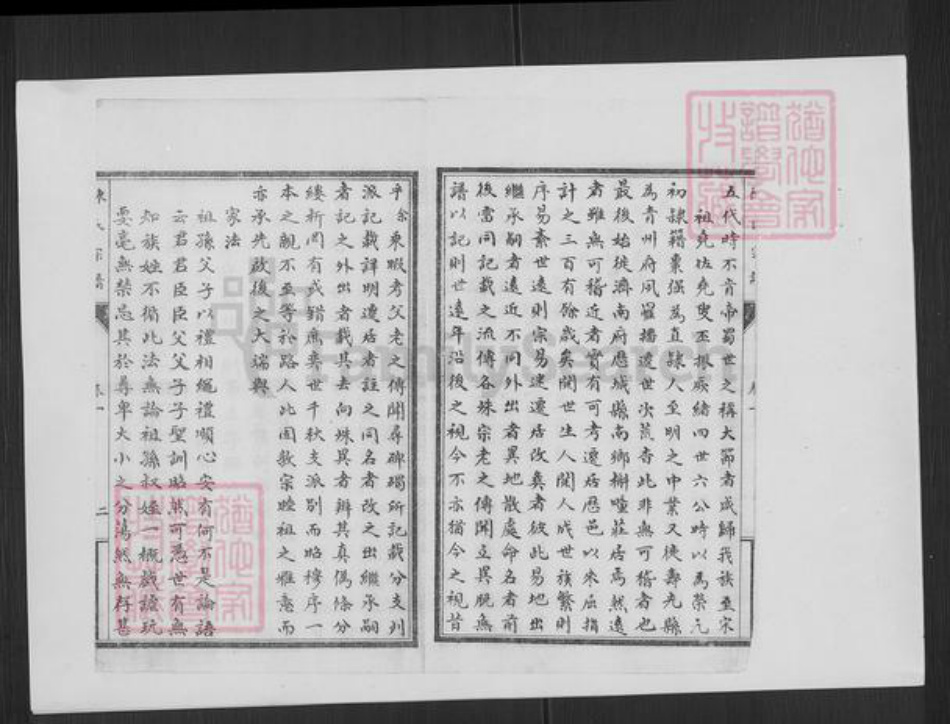 五代時不肯帝蜀世之稱大節者咸歸我族至宋
祖堯佐堯叟丕振厥緒四世六公時以為榮元
初隸籍棗强為直隸人至明之中葉又徙壽光縣
為青州府夙羅播遷世次荒杳此非無可稽者也
最後始徙濟南府歷城縣南鄉槲疃莊居焉然遠
者雖無可稽近者實有可考遷居歷邑以來屈指
計之三百有餘歲矣閱世生人閱人成世族繁則
序易紊世遠則宗易迷遷居改奠者彼此易地出
繼承嗣者遠近不同外出者異地散處命名者前
後雷同記載之流傳各殊宗老之傳聞互異脱無
譜以記則世遠年沿後之視今不亦猶今之視昔
乎余東暇考父老之傳聞尋碑碣所記載分支列
派記載詳明遷居者註之同名者改之出繼承嗣
者記之外出者載其去向殊異者辨其真偽條分
縷析罔有或錯庶奕世千秋支派別而昭穆序一
本之親不至等於路人此固敦宗睦祖之雅意而
亦承先啟後之大端與
家法
祖孫父子以禮相繩禮順心安有何不是論語
云君君臣臣父父子子聖訓昭然可慿世有無
知族姪不循此法無論祖孫叔姪一概戲謔玩
耍毫無禁忌其於尊卑大小之分蕩然無存甚
卷一
二
FamilySearch